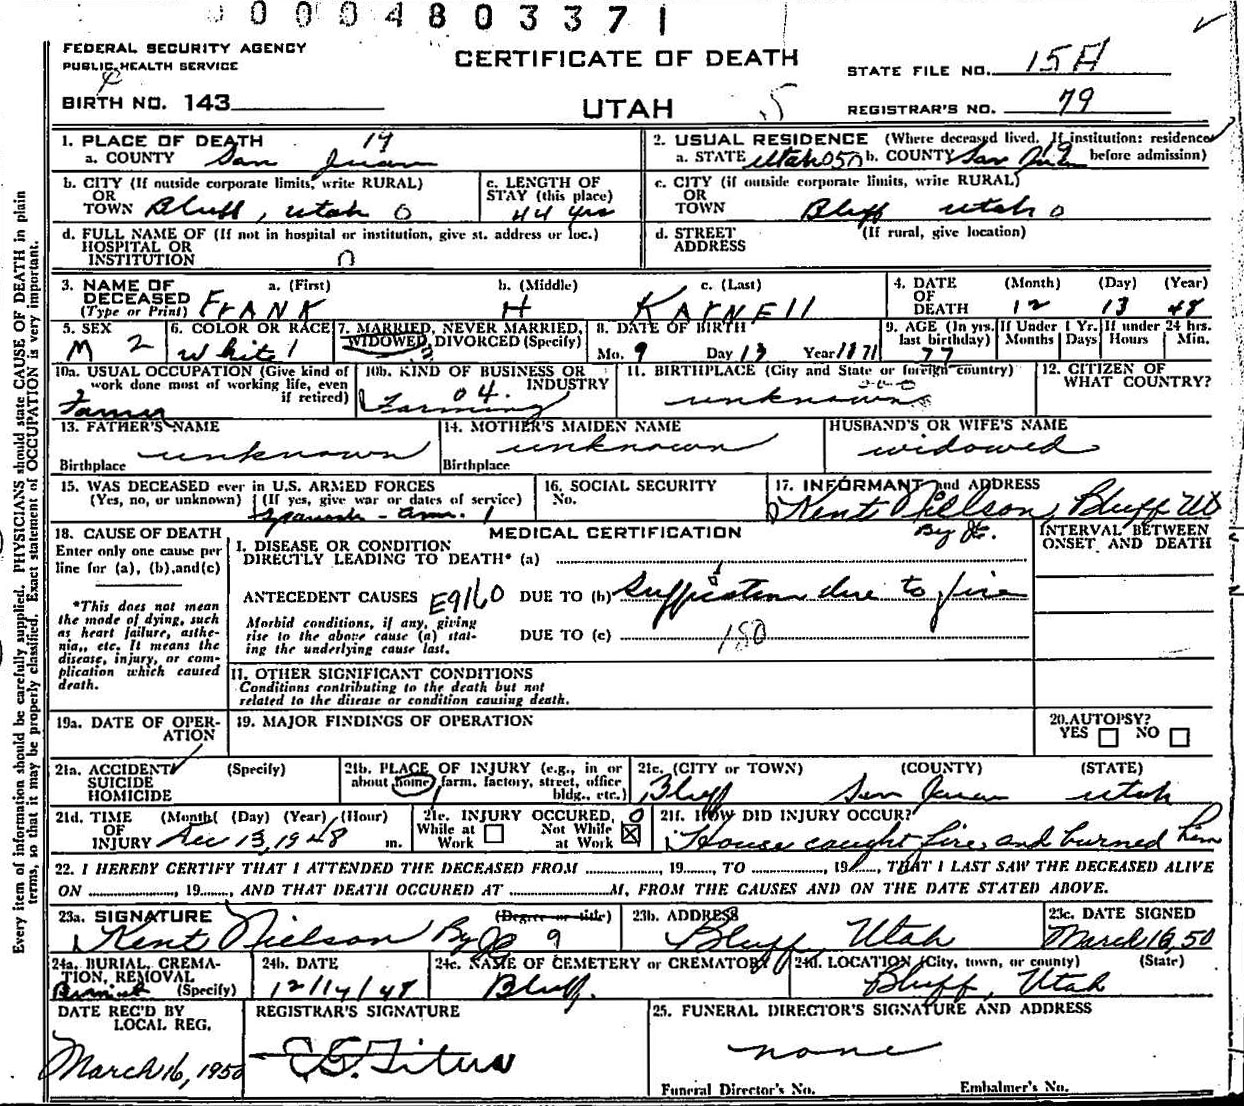 00004803371
FEDERAL SECURITY AGENCY
PUBLIC HEALTH SERVICE
CERTIFICATE OF DEATH
STATE FILE NO. 15A
BIRTH NO. 143
UTAH 5
REGISTRAR'S NO. 79
1. PLACE OF DEATH 19
a. COUNTY San Juan
2. USUAL RESIDENCE (Where deceased lived. If institution: residence before admission)
a. STATE Utah 050 b. COUNTY San Juan 19
b. CITY (If outside corporate limits, write RURAL)
OR
TOWN Bluff, Utah 0
c. LENGTH OF
STAY (this place)
44 yrs
c. CITY (if outside corporate limits, write RURAL)
OR
TOWN Bluff Utah 0
d. FULL NAME OF (If not in hospital or institution, give st. address or loc.)
HOSPITAL OR
INSTITUTION 0
d. STREET (If rural, give location)
ADDRESS
3. NAME OF
DECEASED
(Type or Print)
a. (First) b. (Middle) c. (Last)
FrANK H KArNEll
4. DATE
OF
DEATH
(Month) (Day) (Year)
12 13 48
5. SEX
M 2
6. COLOR OR RACE
White 1
7. MARRIED, NEVER MARRIED,
WIDOWED, DIVORCED (Specify)
3
8. DATE OF BIRTH
Mo. 9 Day 13 Year 1871
9. AGE (In yrs. last birthday)
77
If Under 1 Yr.
Months Days
If under 24 hrs.
Hours Min.
10a. USUAL OCCUPATION (Give kind of
work done most of working life, even
if retired)
Farmer
10b. KIND OF BUSINESS OR
INDUSTRY
04.
Farming
11. BIRTHPLACE (City and State or foreign country)
unknown
12. CITIZEN OF
WHAT COUNTRY?
13. FATHER'S NAME
unknown
Birthplace
14. MOTHER'S MAIDEN NAME
unknown
Birthplace
HUSBAND'S OR WIFE'S NAME
widowed
15. WAS DECEASED ever in U.S. ARMED FORCES
(Yes, no, or unknown) (If yes, give war or dates of service)
Spanish - Am. 1
16. SOCIAL SECURITY
No.
17. INFORMANT and ADDRESS
Kent Nielson, Bluff Ut
By
18. CAUSE OF DEATH
Enter only one cause per
line for (a), (b), and (c)
*This does not mean
the mode of dying, such
as heart failure, asthe-
nia, etc. It means the
disease, injury, or com-
plication which caused
death.
MEDICAL CERTIFICATION
I. DISEASE OR CONDITION
DIRECTLY LEADING TO DEATH* (a)
ANTECEDENT CAUSES E9160 DUE TO (b) Suffication due to fire
Morbid conditions, if any, giving
rise to the above cause (a) stat-
ing the underlying cause last.
DUE TO (c) 180
INTERVAL BETWEEN
ONSET AND DEATH
II. OTHER SIGNIFICANT CONDITIONS
Conditions contributing to the death but not
related to the disease or condition causing death.
19a. DATE OF OPER-
ATION
19. MAJOR FINDINGS OF OPERATION
20. AUTOPSY?
YES NO
21a. ACCIDENT (Specify)
SUICIDE
HOMICIDE
21b. PLACE OF INJURY (e.g., in or
about home, farm, factory, street, office
bldg., etc.)
21c. (CITY or TOWN) (COUNTY) (STATE)
Bluff San Juan Utah
21d. TIME (Month) (Day) (Year) (Hour)
OF
INJURY Dec 13, 1948 m.
21e. INJURY OCCURED, 0
While at Work Not While at Work
21f. HOW DID INJURY OCCUR?
House caught fire, and burned him
22. I HEREBY CERTIFY THAT I ATTENDED THE DECEASED FROM , 19 , TO , 19 , THAT I LAST SAW THE DECEASED ALIVE
ON , 19 , AND THAT DEATH OCCURED AT M, FROM THE CAUSES AND ON THE DATE STATED ABOVE.
23a. SIGNATURE (Degree or title)
Kent Nielson By 9
23b. ADDRESS
Bluff, Utah
23c. DATE SIGNED
March 16, 50
24a. BURIAL, CREMA-
TION, REMOVAL
(Specify)
24b. DATE
12/14/48
24c. NAME OF CEMETERY or CREMATORY
Bluff.
24d. LOCATION (City, town, or county) (State)
Bluff, Utah
DATE REC'D BY
LOCAL REG.
March 16, 1950
REGISTRAR'S SIGNATURE
25. FUNERAL DIRECTOR'S SIGNATURE AND ADDRESS
none
Funeral Director's No. Embalmer's No.
Every item of information should be carefully supplied. PHYSICIANS should state CAUSE OF DEATH in plain
terms, so that it may be properly classified. Exact statement of OCCUPATION is very important.